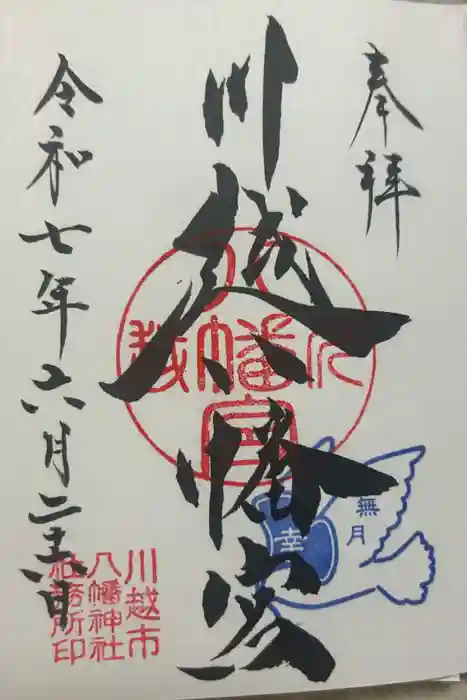 奉拝
川越八幡宮
令和七年六月二十六日
川越
八幡宮
無月
幸
川越市
八幡神社
社務所印